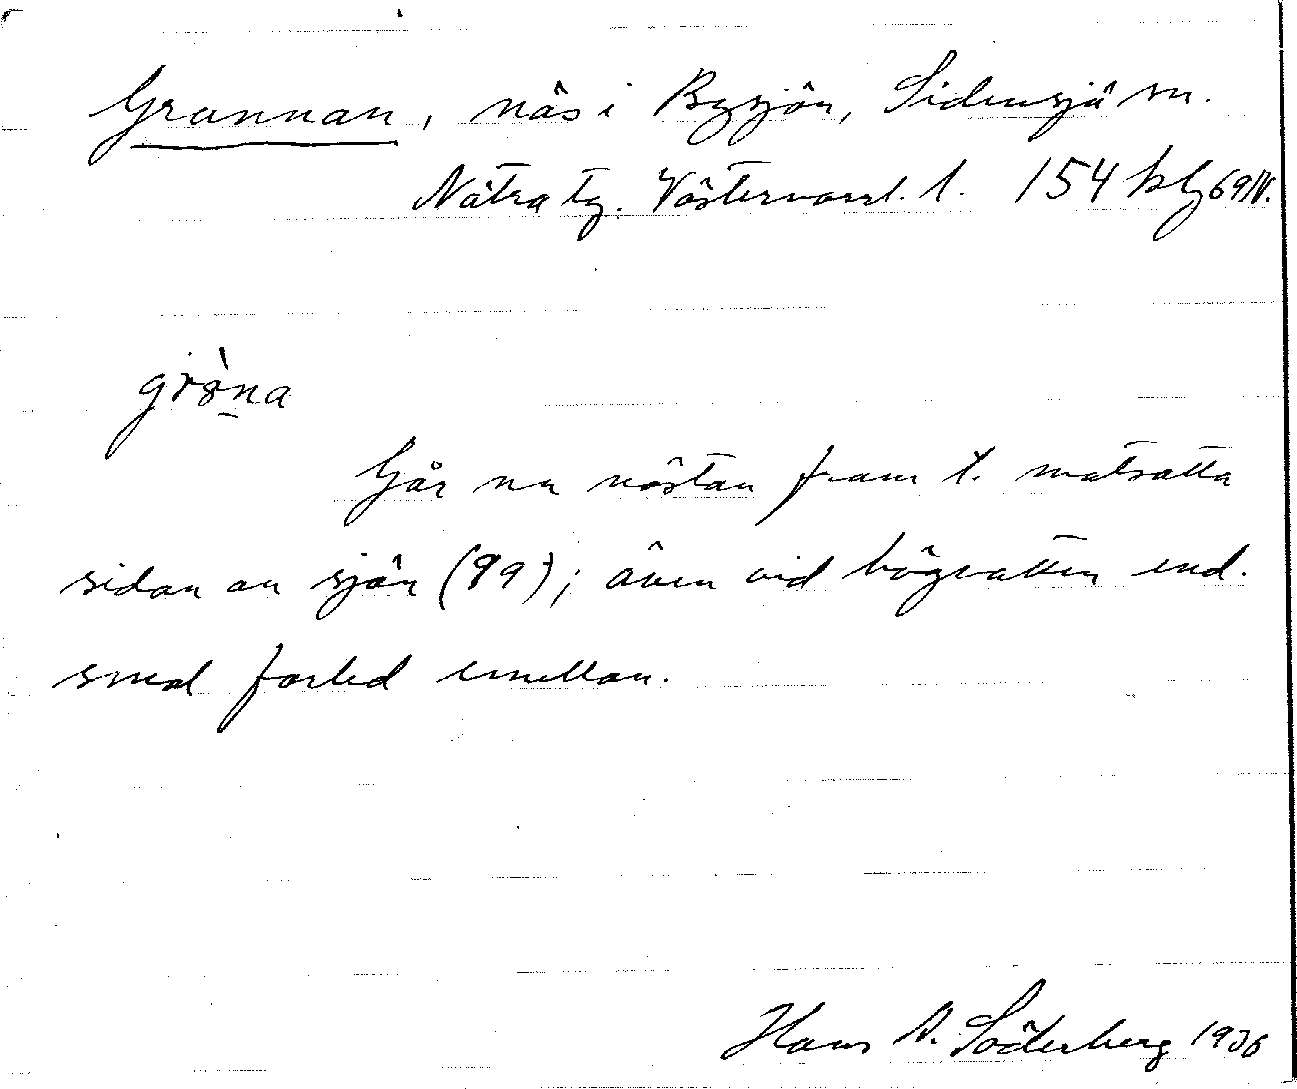 Grunnan, näs i Bysjön, Sidensjö sn.
Nätra tg. Västernorrl. l. 154 bfg 69 IV.
grö̀na
Går nu nästan fram t. motsatta
sidan av sjön (99); även vid högvatten end.
smal farled emellan.
Hans A. Söderberg 1936